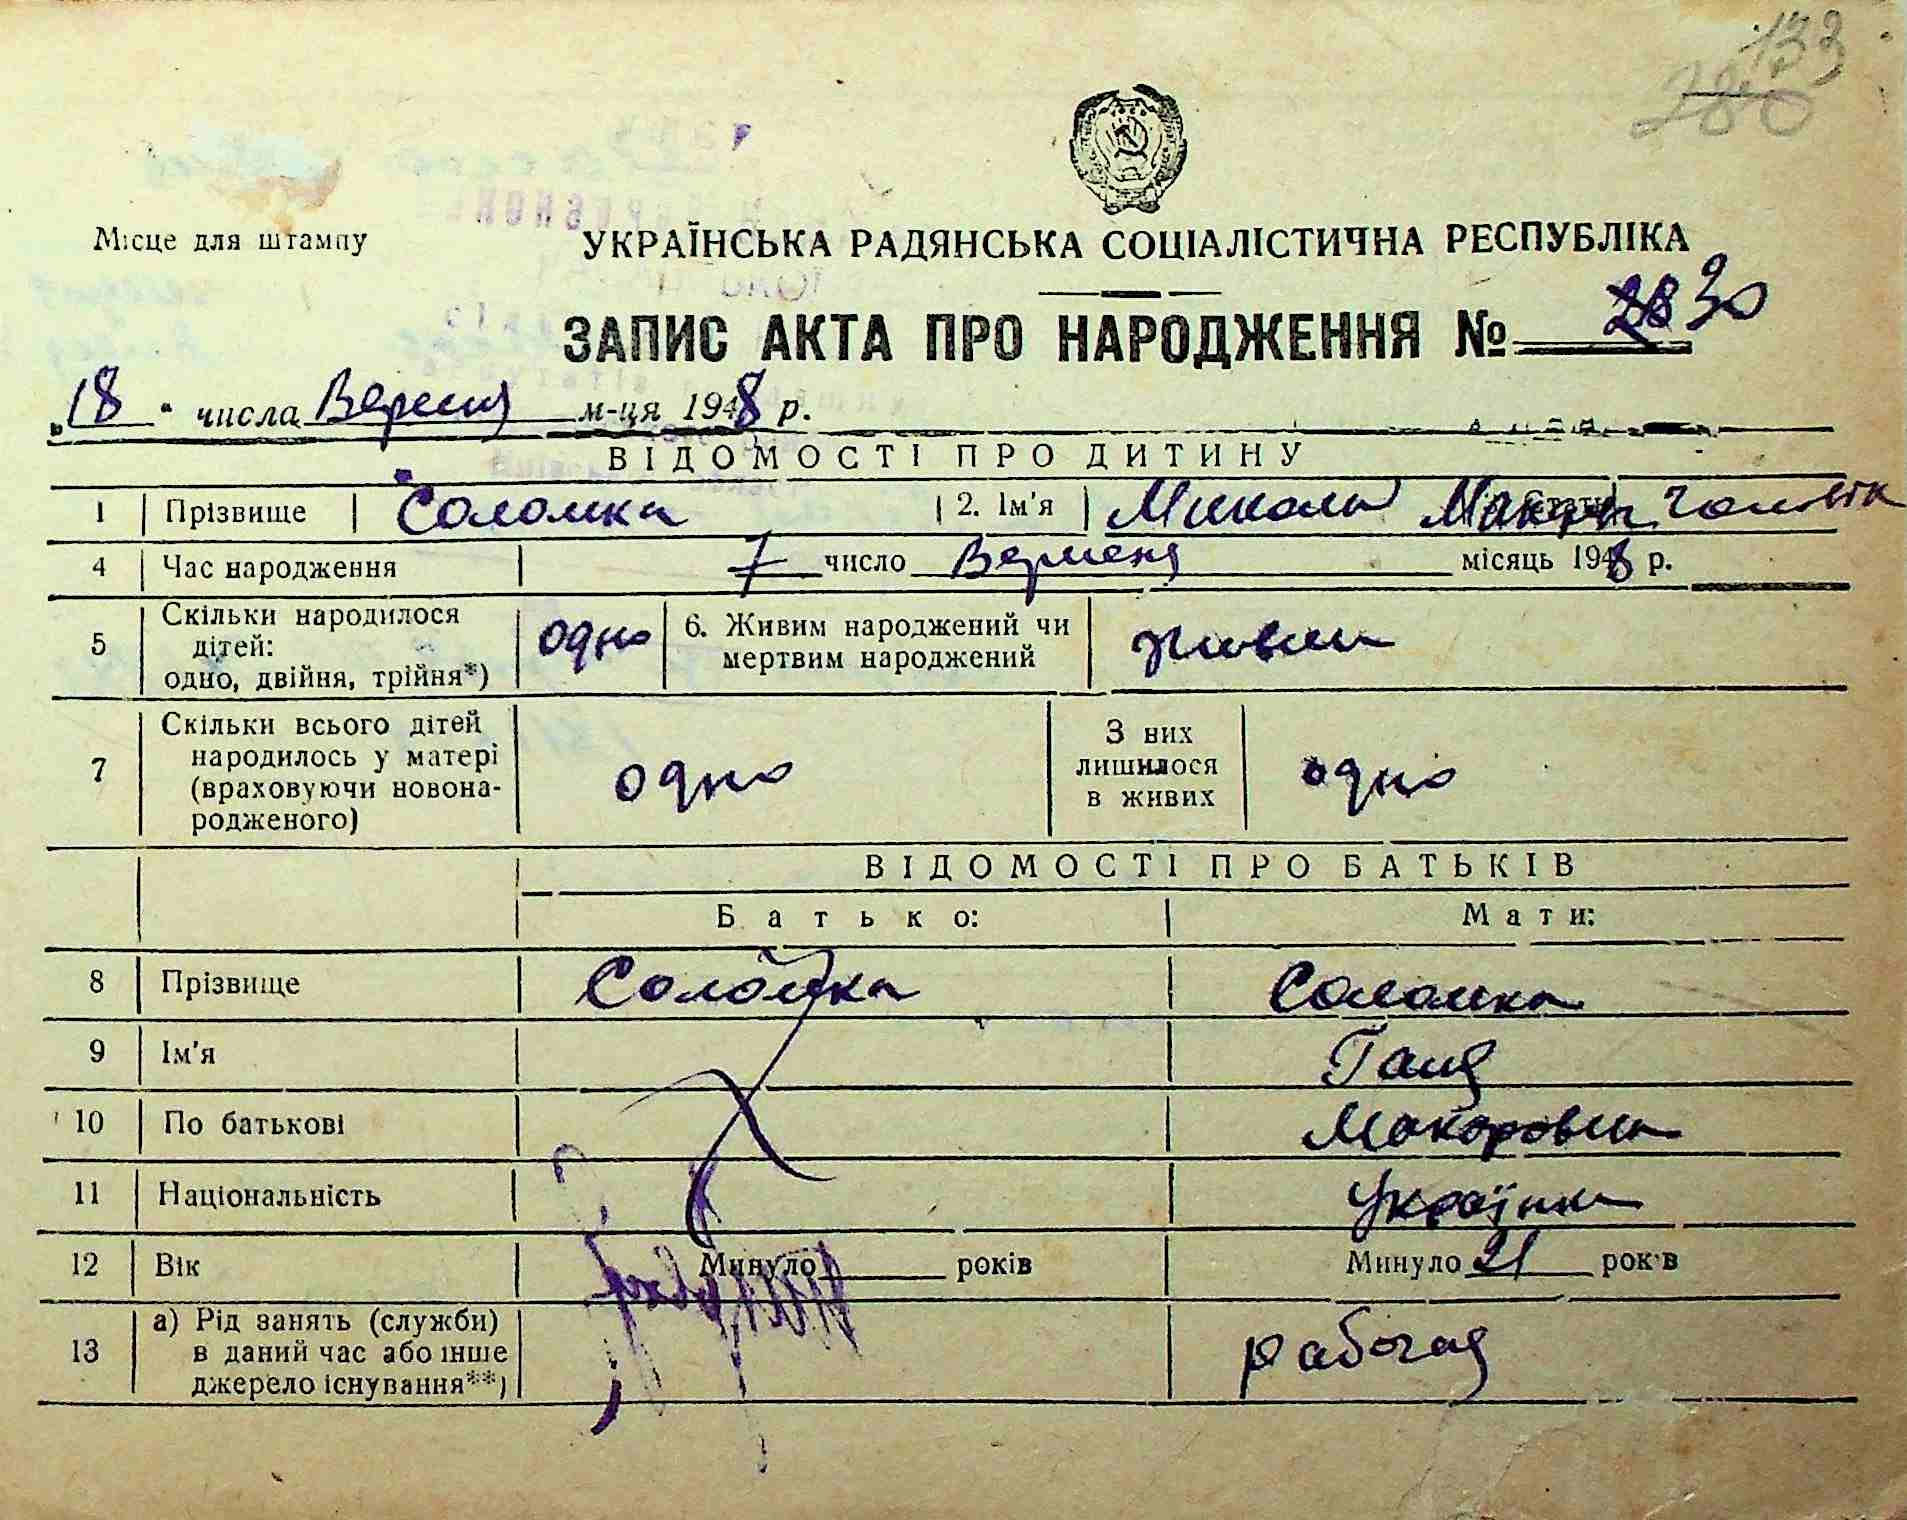 133
280
Місце для штампу
УКРАЇНСЬКА РАДЯНСЬКА СОЦІАЛІСТИЧНА РЕСПУБЛІКА
ЗАПИС АКТА ПРО НАРОДЖЕННЯ № 30
„18" числа Вересня м-ця 1948 р.
ВІДОМОСТІ ПРО ДИТИНУ
1 Прізвище Соломка 2. Ім'я Микола Макар чоловік
4 Час народження 7 число Вересня місяць 1948 р.
5 Скільки народилося дітей: одно, двійня, трійня*) одно 6. Живим народжений чи мертвим народжений живим
7 Скільки всього дітей народилось у матері (враховуючи новонародженого) одно З них лишилося в живих одно
ВІДОМОСТІ ПРО БАТЬКІВ
Батько: Мати:
8 Прізвище Соломка Соломка
9 Ім'я Галя
10 По батькові Макоровна
11 Національність Українка
12 Вік Минуло років Минуло 21 років
13 а) Рід занять (служби) в даний час або інше джерело існування**) рабочая